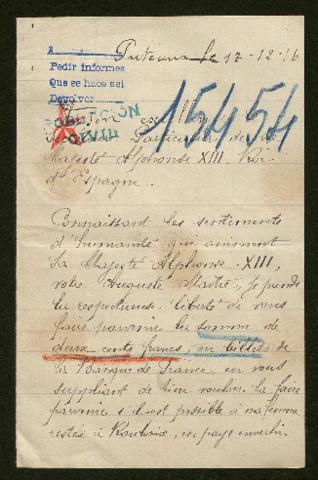 Puteaux le 12-12-16
A
Pedir informes
Que se hace asi
Devolver
POBLACIÓN
CIVIL
15454
Son
Particulier de
Majesté Alphonse XIII. Roi
d'Espagne.
Connaissant les sentiments
d'humanité qui animent
Sa Majesté Alphonse XIII,
votre Auguste Maître, je prends
la respectueuse liberté de vous
faire parvenir la somme de
deux cents francs, en billets de
la Banque de France, en vous
suppliant de bien vouloir la faire
parvenir s'il est possible à ma femme
restée à Roubaix, en pays envahi.